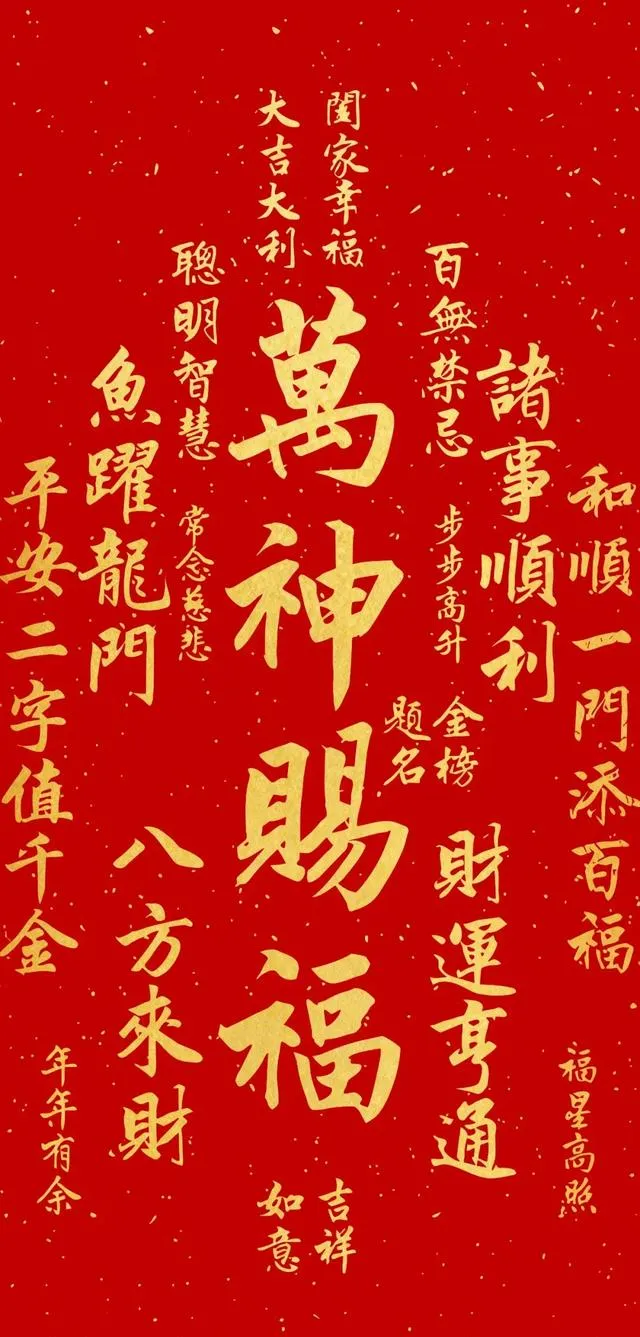 闔家幸福
大吉大利
百無禁忌
聰明智慧
萬神賜福
諸事順利
魚躍龍門
和順一門添百福
平安二字值千金
步步高升
常念慈悲
金榜
題名
財運亨通
八方來財
福星高照
年年有余
吉祥
如意